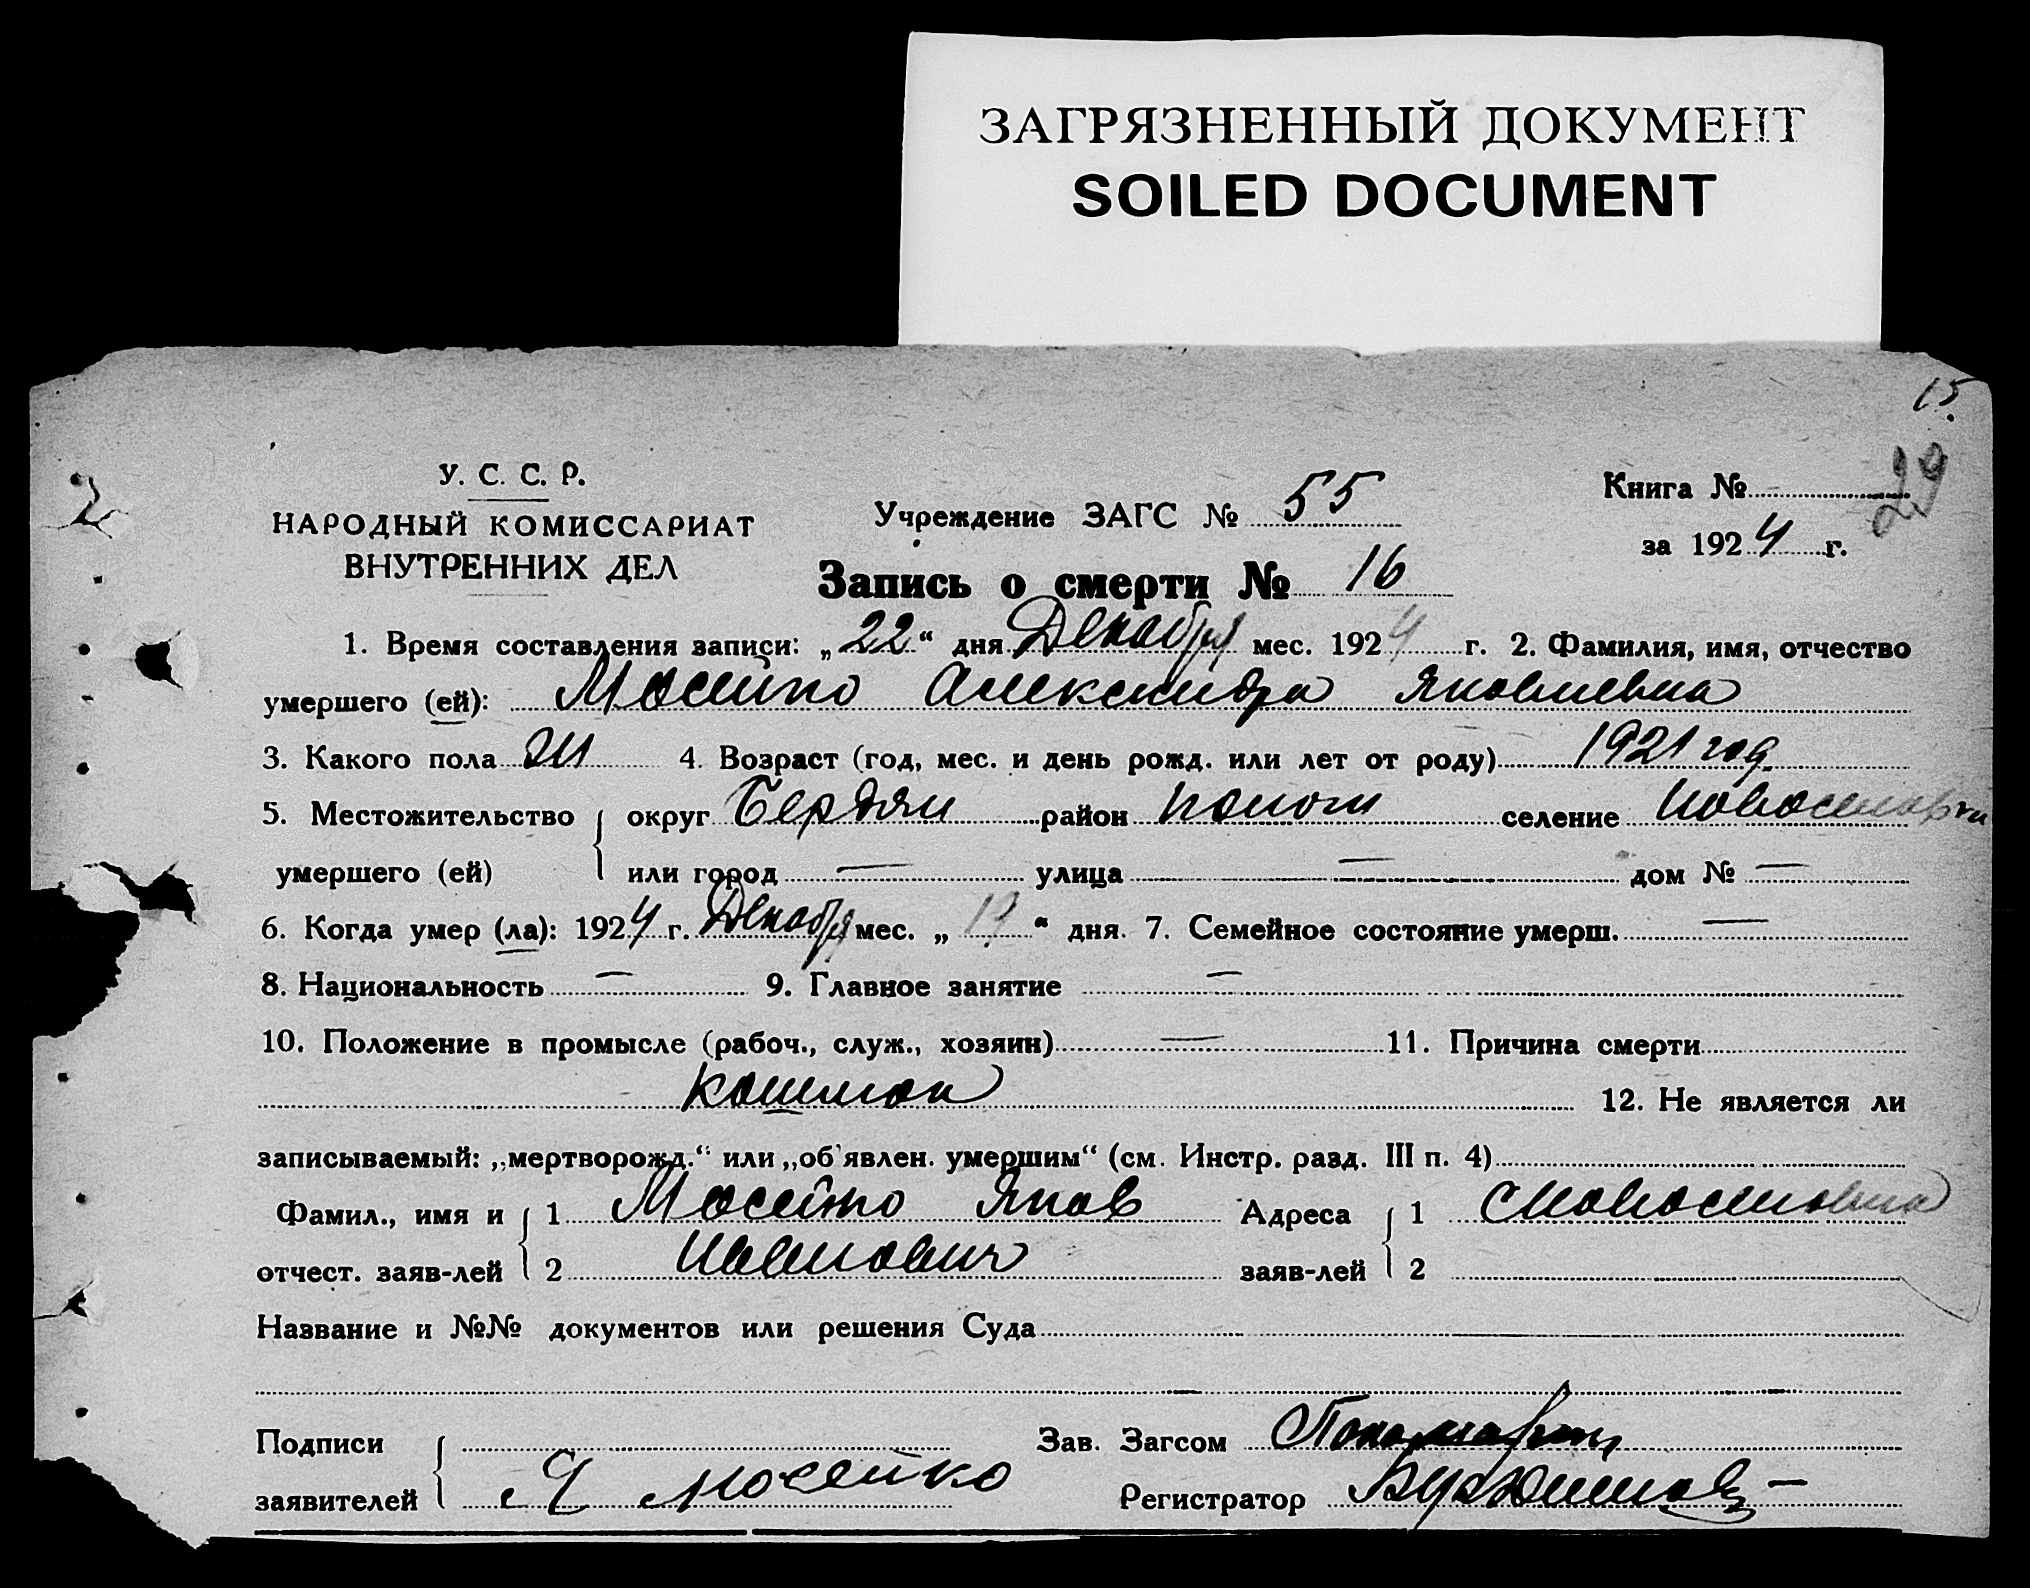 ЗАГРЯЗНЕННЫЙ ДОКУМЕНТ
SOILED DOCUMENT
15.
29
У. С. С. Р.
НАРОДНЫЙ КОМИССАРИАТ
ВНУТРЕННИХ ДЕЛ
Учреждение ЗАГС № 55
Книга №
за 1924 г.
Запись о смерти № 16
1. Время составления записи: „22“ дня Декабря мес. 1924 г. 2. Фамилия, имя, отчество
умершего (ей): Мосейко Александра Яковлевна
3. Какого пола Ж 4. Возраст (год, мес. и день рожд. или лет от роду) 1921 год
5. Местожительство округ Бердян район селение
умершего (ей) или город — улица — дом № —
6. Когда умер (ла): 1924 г. Декабря мес. „19“ дня. 7. Семейное состояние умерш. —
8. Национальность — 9. Главное занятие —
10. Положение в промысле (рабоч., служ., хозяин) — 11. Причина смерти
12. Не является ли
записываемый: „мертворожд.“ или „об'явлен. умершим“ (см. Инстр. разд. III п. 4)
Фамил., имя и 1 Мосейко Яков Адреса 1
отчест. заяв-лей 2 Иванович заяв-лей 2
Название и №№ документов или решения Суда
Подписи Зав. Загсом
заявителей Я Мосейко Регистратор